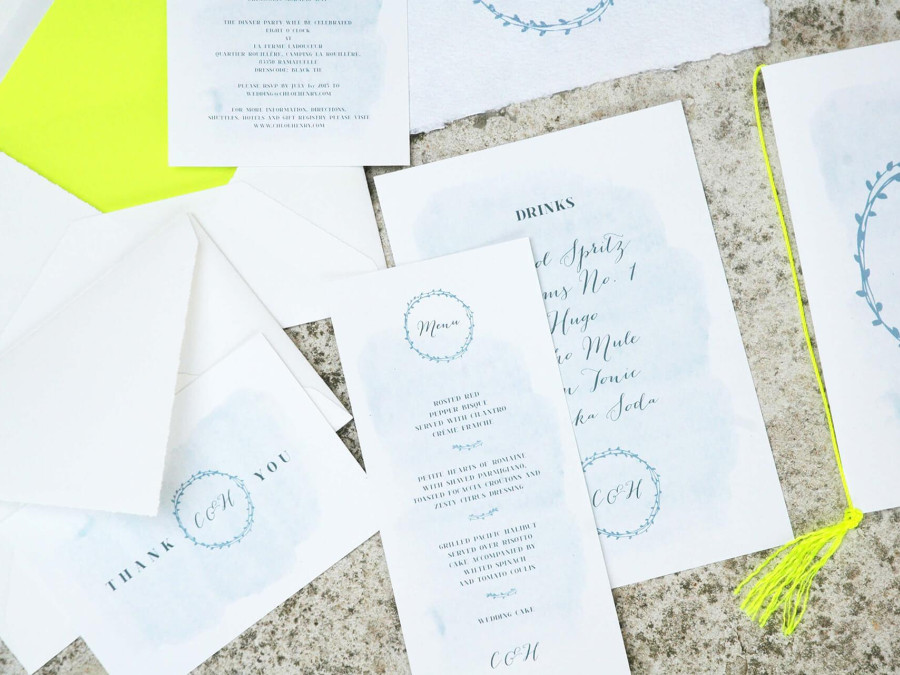 THE DINNER PARTY WILL BE CELEBRATED
EIGHT O'CLOCK
AT
LA FERME LADOUCEUR
QUARTIER ROUILLÈRE, CAMPING LA ROUILLÈRE,
83350 RAMATUELLE
DRESSCODE: BLACK TIE
PLEASE RSVP BY JULY 1st 2015 TO
WEDDING@CHLOEHENRY.COM
FOR MORE INFORMATION, DIRECTIONS,
SHUTTLES, HOTELS AND GIFT REGISTRY PLEASE VISIT
WWW.CHLOEHENRY.COM
DRINKS
ol Spritz
ms No. 1
Hugo
Mule
Tonic
ka Soda
C&H
Menu
ROSTED RED
PEPPER BISQUE
SERVED WITH CILANTRO
CRÈME FRAICHE
PETITE HEARTS OF ROMAINE
WITH SHAVED PARMIGIANO,
TOASTED FOCACCIA CROUTONS AND
ZESTY CITRUS DRESSING
GRILLED PACIFIC HALIBUT
SERVED OVER RISOTTO
CAKE ACCOMPANIED BY
WILTED SPINACH
AND TOMATO COULIN
WEDDING CAKE
C&H
THANK C&H YOU